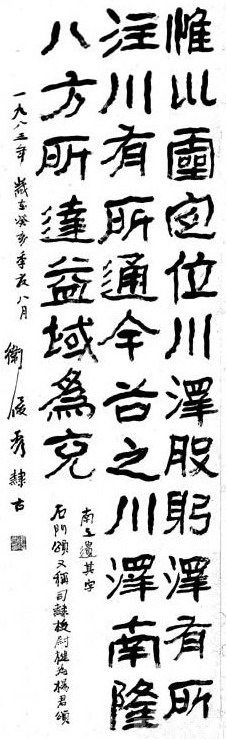 惟㠯靈定位川澤股躬澤有所
注川有所通余谷之川澤南隆
八方所達益域為充
南上遺其字
石門頌又稱司隸校尉楗為楊君頌
一九八三年歲在癸亥季夏八月
衛俊秀隸古